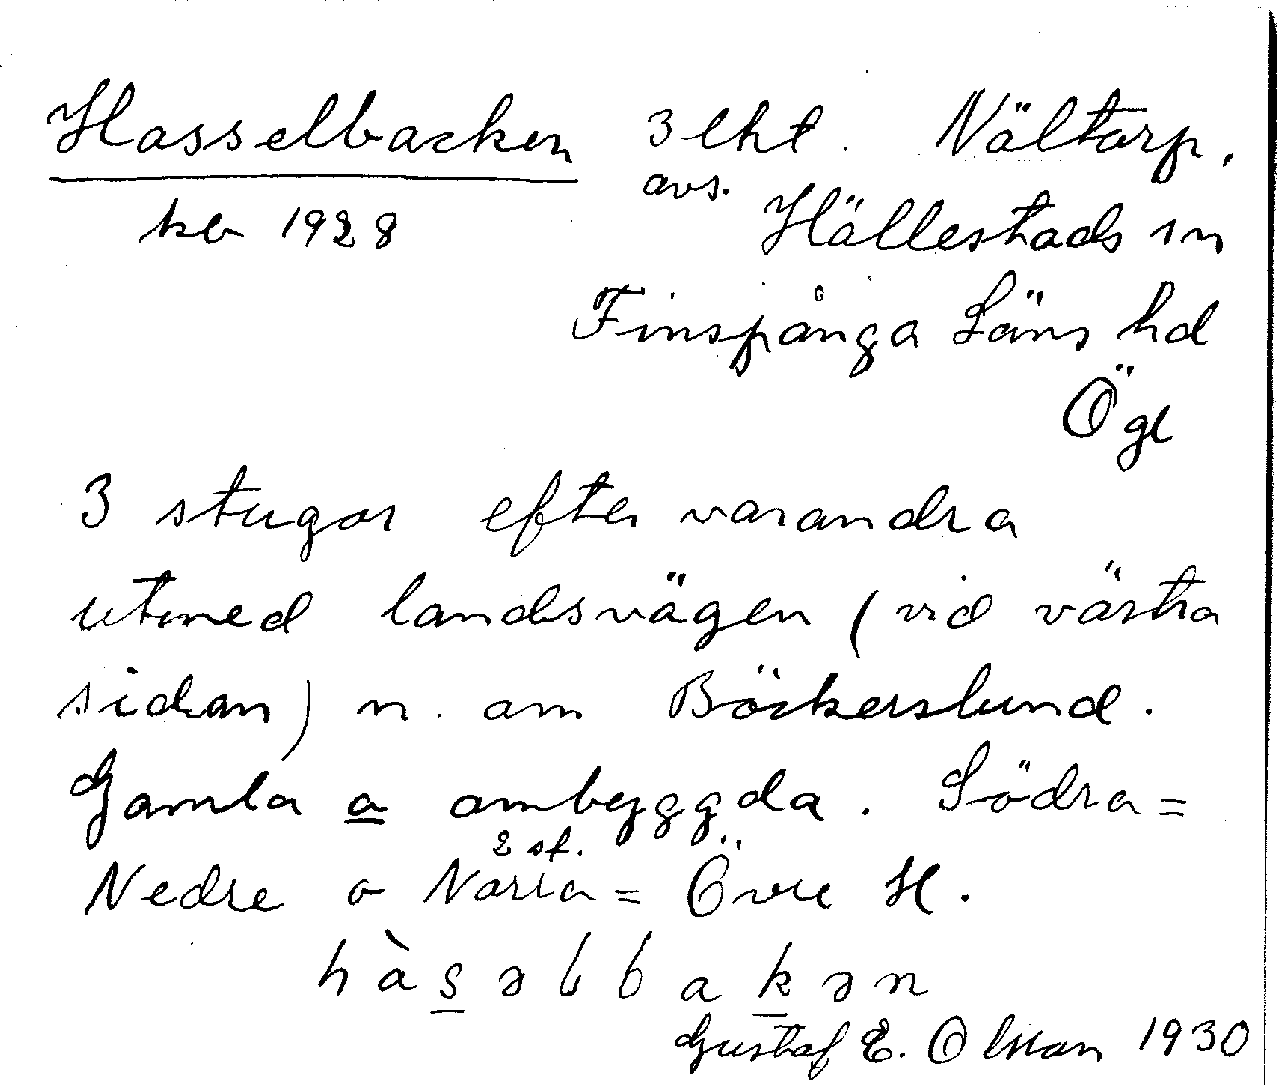 Hasselbacken 3 lht. Nältorp,
avs.
ka 1928 Hällestads sn
Finspånga Läns hd
Ögl
3 stugor efter varandra
utmed landsvägen (vid västra
sidan) n. om Böckerslund.
Gamla o ombyggda. Södra =
2 st.
Nedre o Norra = Övre H.
hàsəlbakən
Gustaf E. Olson 1930